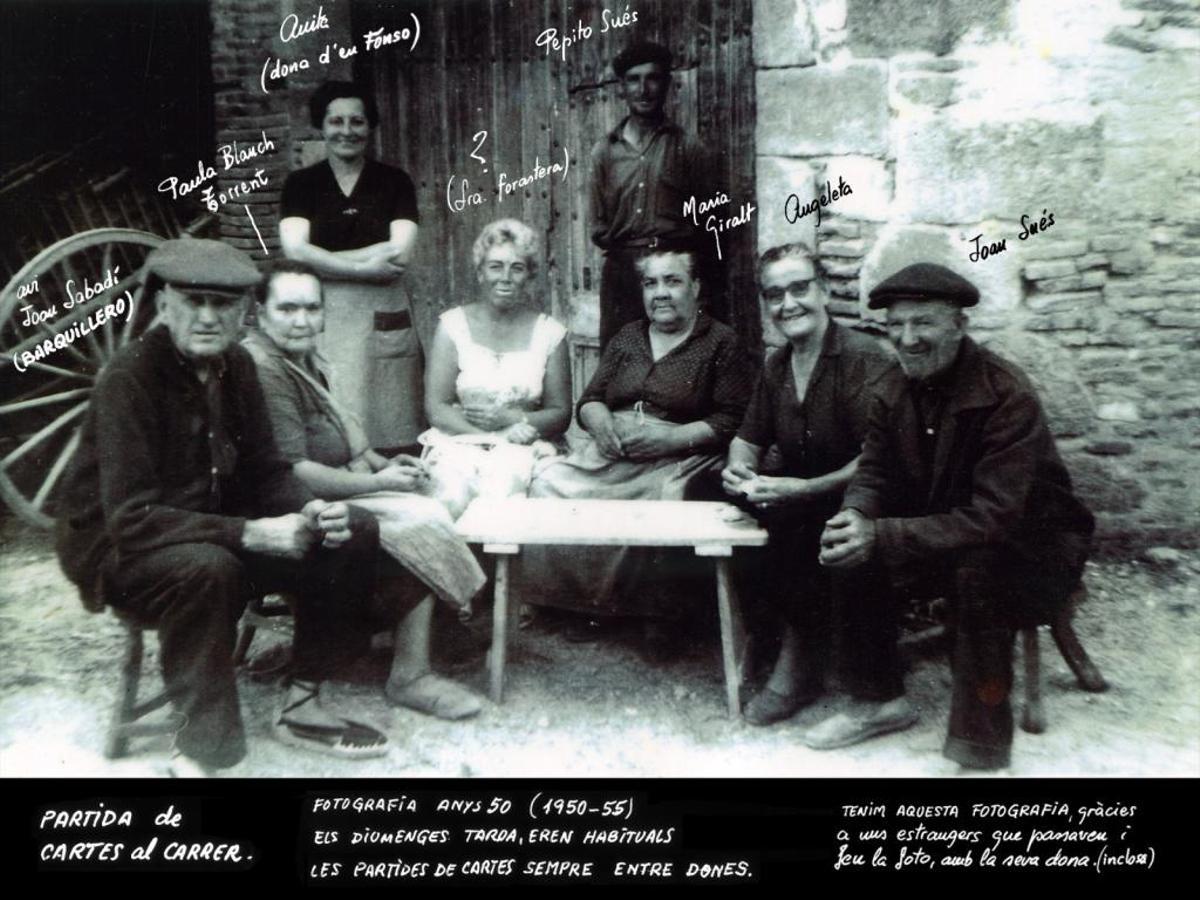 Anita
(dona d'en Fonso)
Pepito Sués
Paula Blanch
Torrent
?
(Sra. forastera)
Maria
Giralt
Angeleta
Joan Sués
avi
Joan Sabadí
(BARQUILLERO)
PARTIDA de
CARTES al CARRER.
FOTOGRAFIA ANYS 50 (1950-55)
ELS DIUMENGES TARDA, EREN HABITUALS
LES PARTIDES DE CARTES SEMPRE ENTRE DONES.
TENIM AQUESTA FOTOGRAFIA, gràcies
a uns estrangers que passaven i
feu la foto, amb la seva dona. (inclosa)